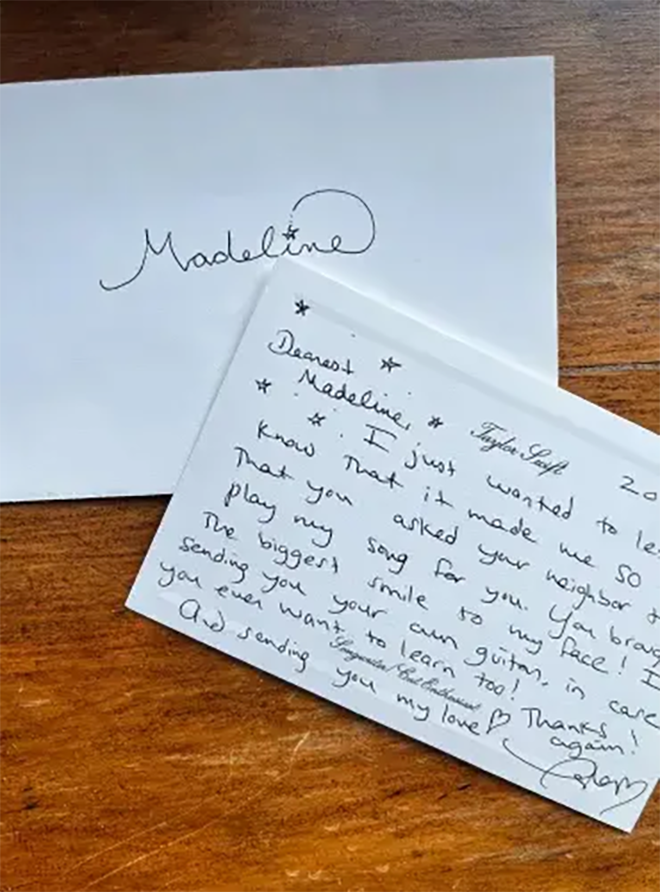 Madeline
Dearest
Madeline,
Taylor Swift
20
I just wanted to le
know that it made me so
that you asked your neighbor t
play my song for you. You broug
the biggest smile to my face! I
sending you your own guitar, in case
you ever want to learn too! Thanks
Songwriter/Cat Enthusiast
And sending you my love again!